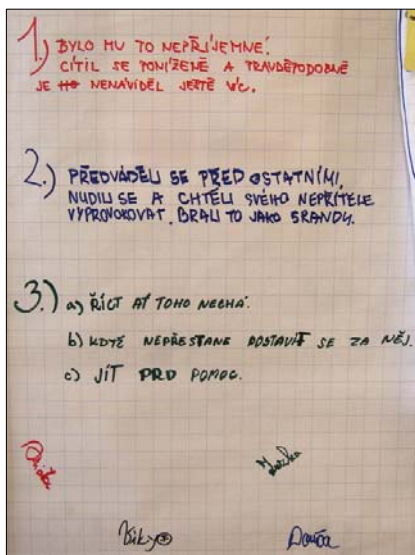 1.) BYLO MU TO NEPŘÍJEMNÉ.
CÍTIL SE PONÍŽENĚ A PRAVDĚPODOBNĚ
JE NENÁVIDĚL JEŠTĚ VÍC.
2.) PŘEDVÁDĚLI SE PŘED OSTATNÍMI,
NUDILI SE A CHTĚLI SVÉHO NEPŘÍTELE
VYPROVOKOVAT. BRALI TO JAKO SRANDU.
3.) a) ŘÍCT AŤ TOHO NECHÁ.
b) KDYŽ NEPŘESTANE POSTAVIT SE ZA NĚJ.
c) JÍT PRO POMOC.
Viky